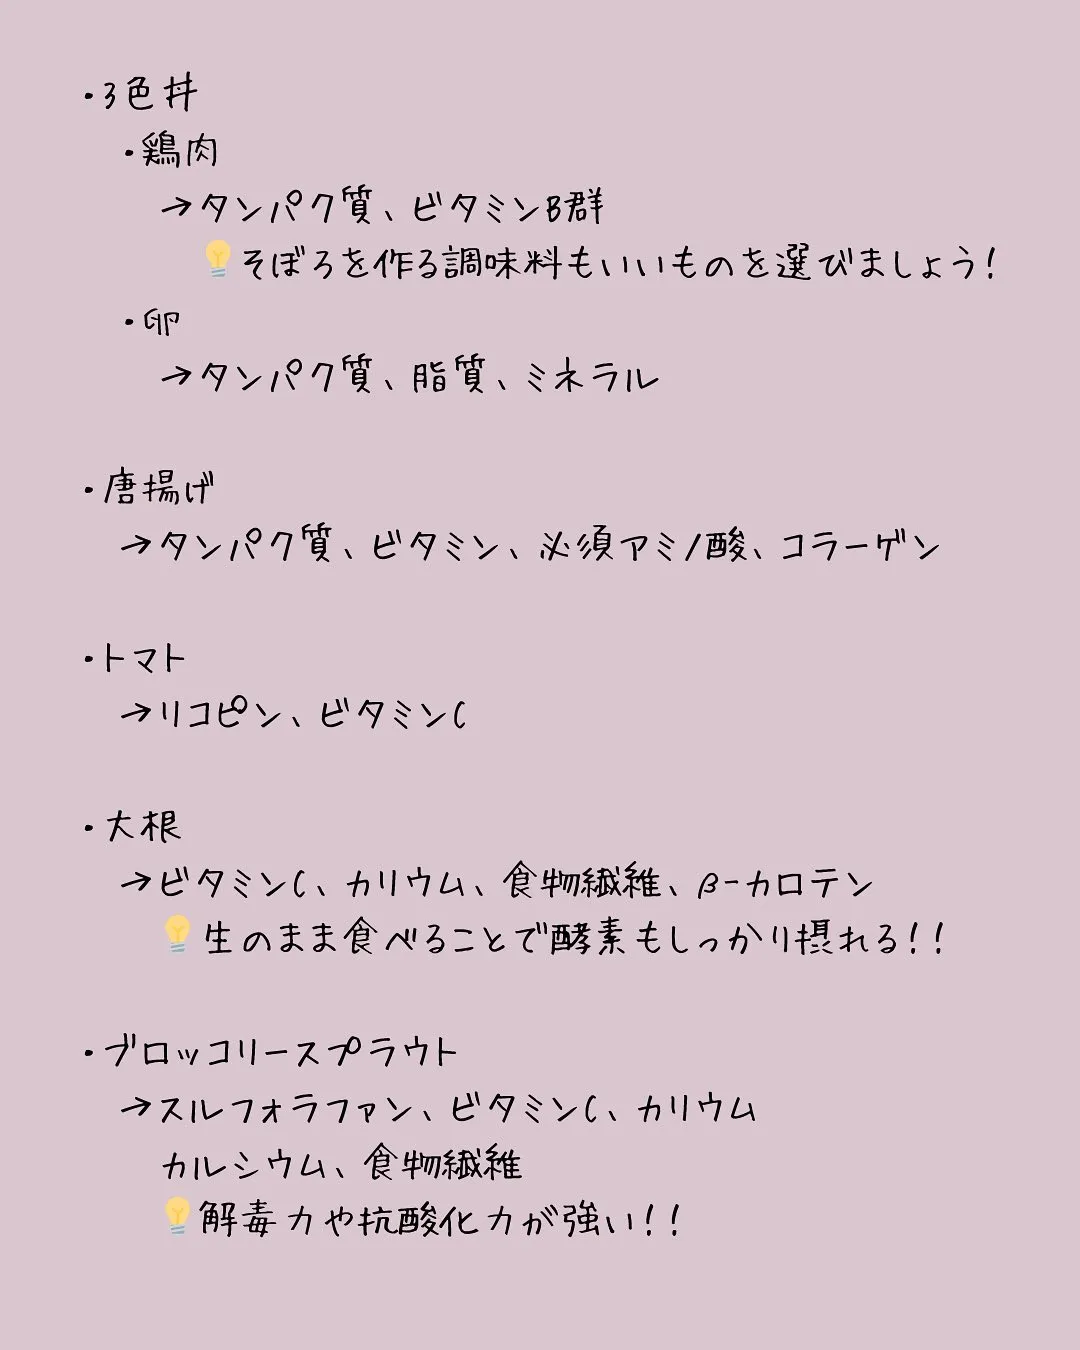 ・3色丼
・鶏肉
→タンパク質、ビタミンB群
💡そぼろを作る調味料もいいものを選びましょう!
・卵
→タンパク質、脂質、ミネラル
・唐揚げ
→タンパク質、ビタミン、必須アミノ酸、コラーゲン
・トマト
→リコピン、ビタミンC
・大根
→ビタミンC、カリウム、食物繊維、β-カロテン
💡生のまま食べることで酵素もしっかり摂れる!!
・ブロッコリースプラウト
→スルフォラファン、ビタミンC、カリウム
カルシウム、食物繊維
💡解毒力や抗酸化力が強い!!